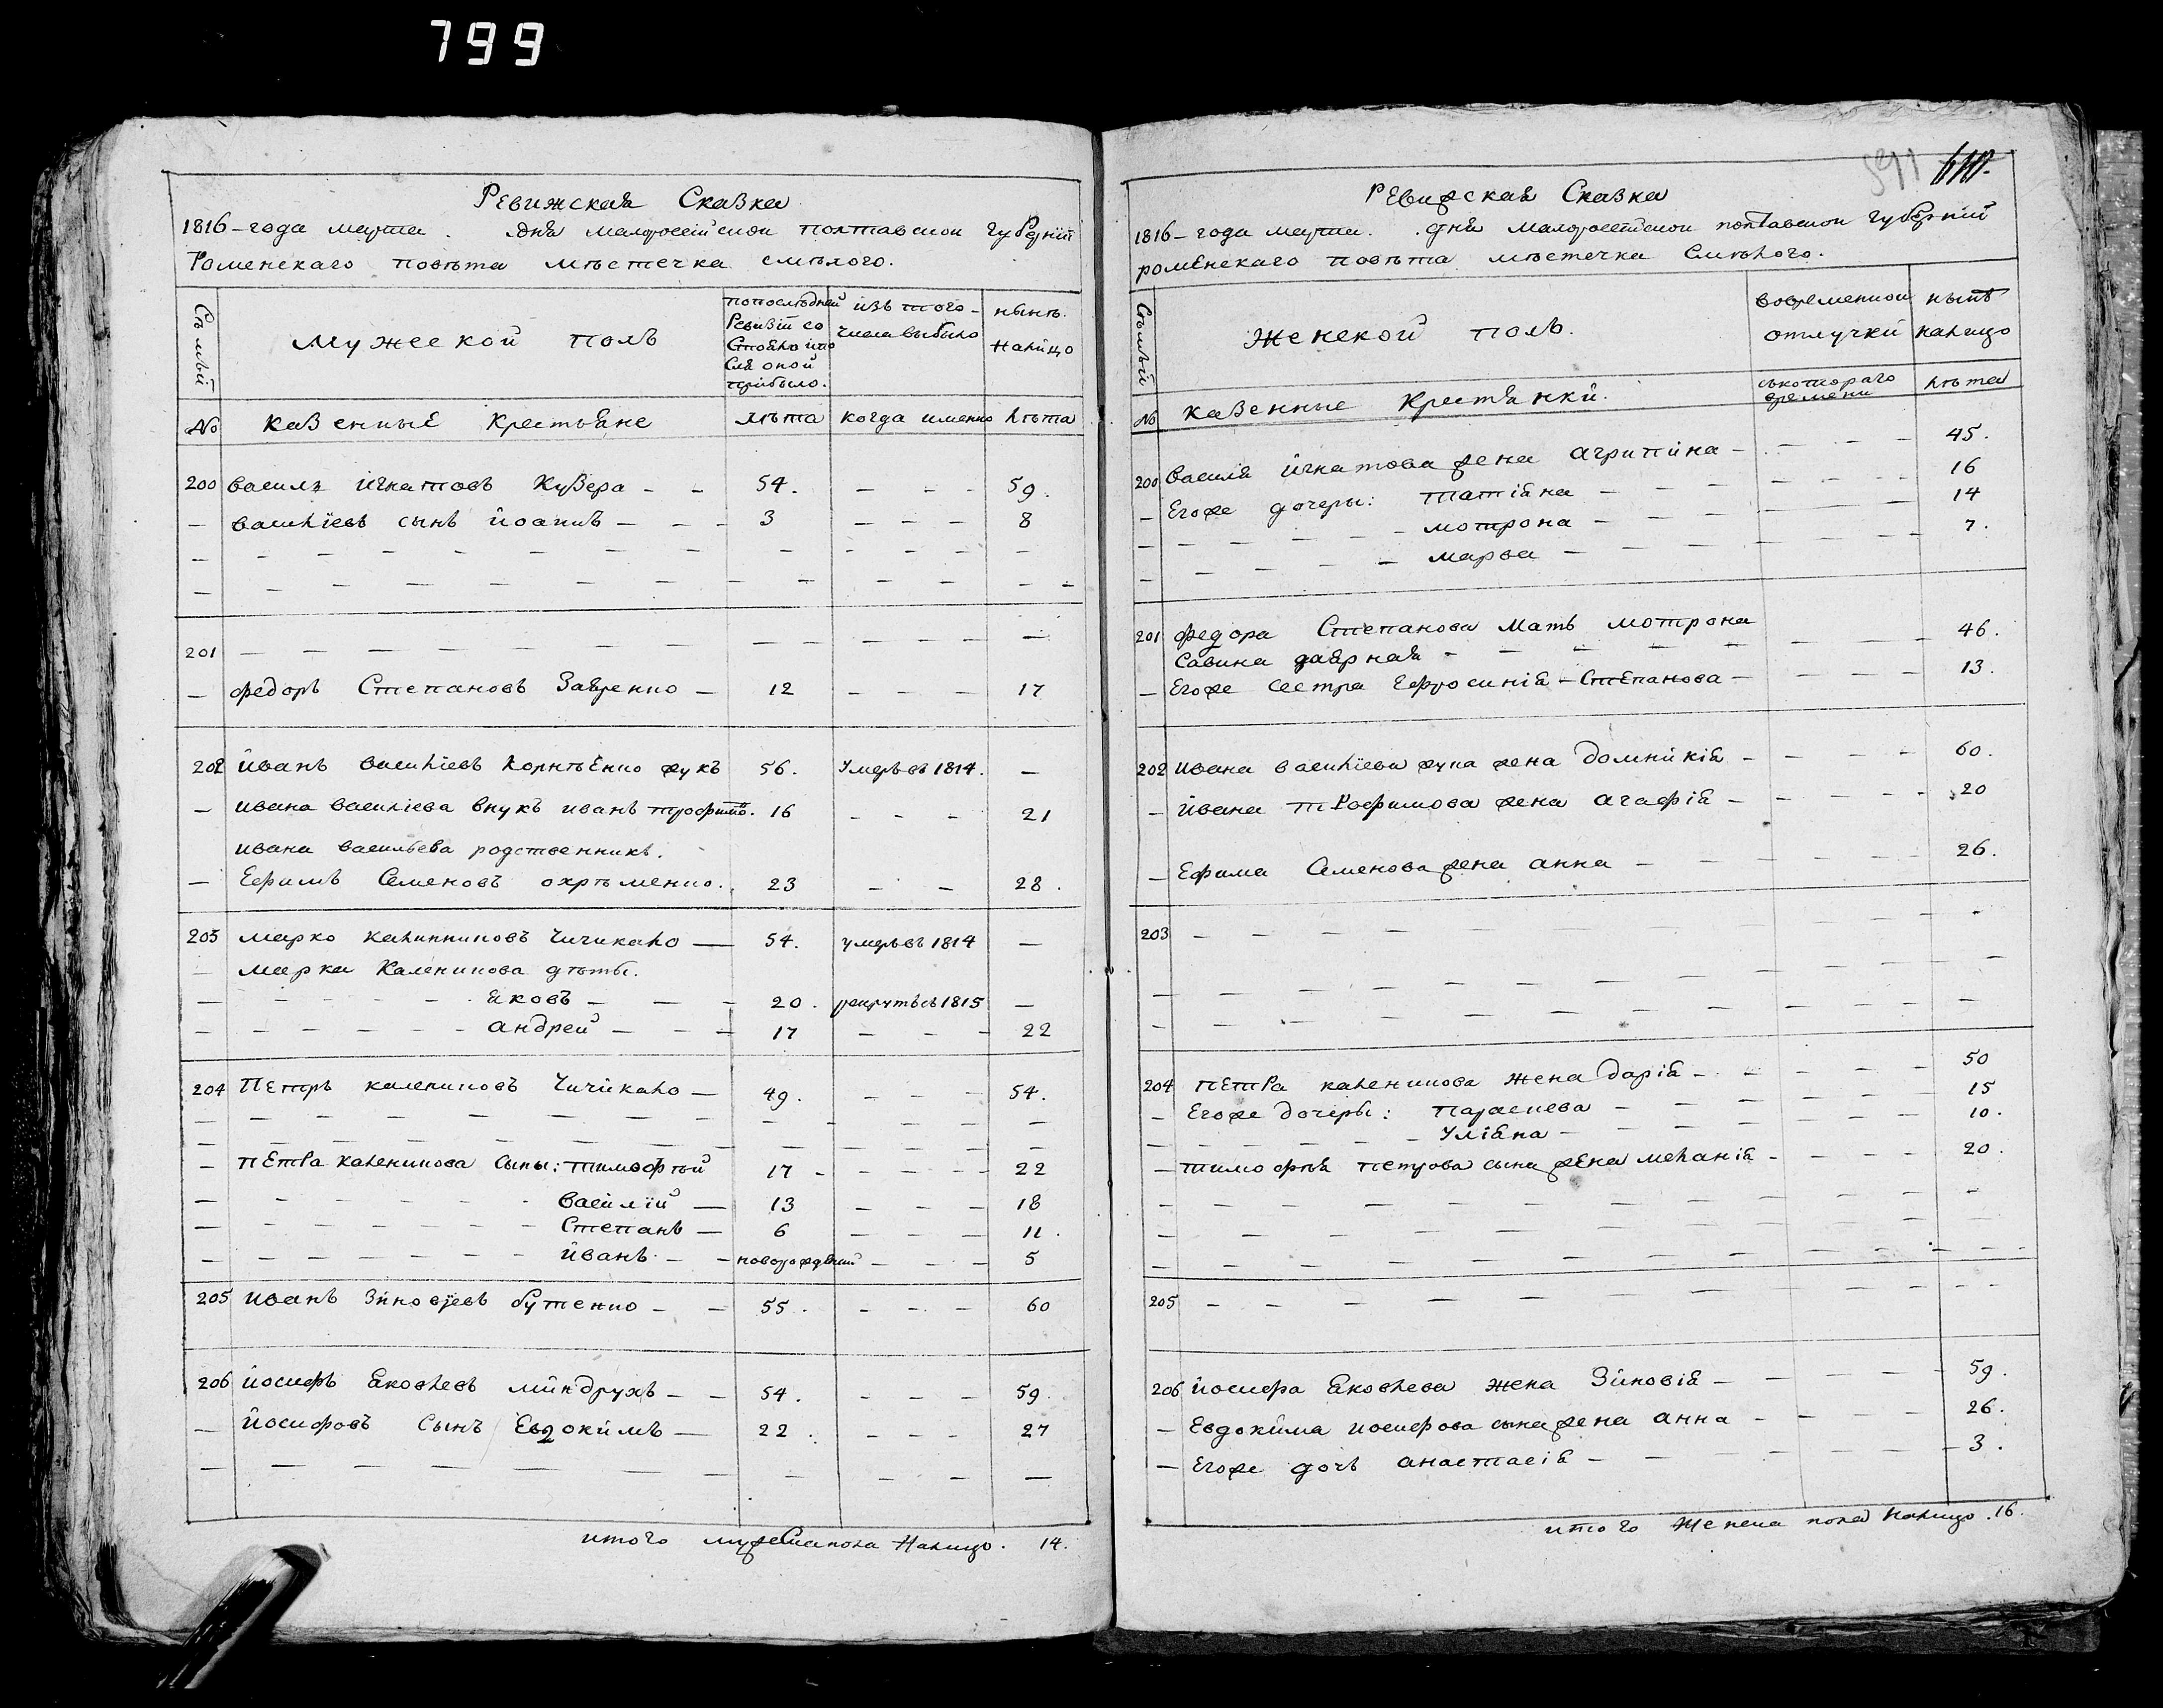 799
Ревижская Сказка
1816-года марта . дня малоросӣской полтавской губернӣи
Роменскаго повѣта мѣстечка смѣлого.
Сѣмьй
Мужеской полъ
попослѣдней
Ревизӣи со
стояло ипо
сля оной
прибыло.
изъ того
числа выбыло
нынѣ.
налицо
№ казенные крестьяне лѣта когда именно лѣта
200 василь игнатовъ Кувера - - 54. - - - 59.
- васильевъ сынъ иоаннъ - - - 3 - - - 8
201
- федоръ Степановъ Заяренко - 12 - - - 17
202 иванъ васильевъ Корнѣенко жукъ 56. умеръ въ 1814. -
- ивана василиева внукъ иванъ трофимо. 16 - - - 21
ивана васильева родственникъ.
- Ефимъ Семеновъ охрѣменко. 23 - - 28.
203 марко калиниковъ Чичикало - 54. умеръ въ 1814 -
- марка Каленикова дѣты.
- - - - - яковъ - - - 20. рекрутъ въ 1815 -
- - - - - андрей - - - 17 - - - 22
204 Петръ калениковъ Чичикало - 49. - - - 54.
- петра каленикова сыны: тимофѣй 17 - - - - 22
- - - - - василий - 13 - - - 18
- - - - - Степанъ - 6 - - - 11.
- - - - - иванъ - - новорожденый - - - 5
205 иванъ Зиновіевъ бутенко - - 55. - - - 60
206 иосифъ яковлевъ миндрухъ - - 54. - - - 59.
- иосифовъ Сынъ Евдокимъ - 22. - - - 27
итого мужеска пола налицо. 14.
591 610.
Ревижская Сказка
1816-года марта. дня малоросѣйской полтавской губернӣи
роменскаго повѣта мѣстечка Смѣлого.
Сѣмьй
Женской полъ.
вовременной
отлучки
нынѣ
налицо
№ казенные Крестянки.
скотораго
времени
лѣта
200 василя игнатова жена агрипина - - - - 45.
- Егоже дочеры: татіяна - - - 16
- - - - мотрона - - - 14
- - - - марва - - - 7.
201 федора Степанова мать мотрона
савина заярная - - - - 46.
- Егоже сестра Ефросинія - Степанова - - - - 13.
202 ивана василіева жука жена домникія - - - - 60.
- ивана трофимова жена агафія - - - - 20
- Ефима Семенова жена анна - - - - 26.
203
204 петра каленикова жена дарія - - - - 50
- Егоже дочеры: параскева - - - - 15
- - - - - Уліяна - - - 10.
- тимофѣя петрова сына жена меланія - - - - 20.
205
206 иосифа яковлева жена Зиновія - - - - 59.
- Евдокима иосифова сына жена анна - - - 26.
- Егоже дочь анастасія - - - - 3.
итого женска пола налицо. 16.